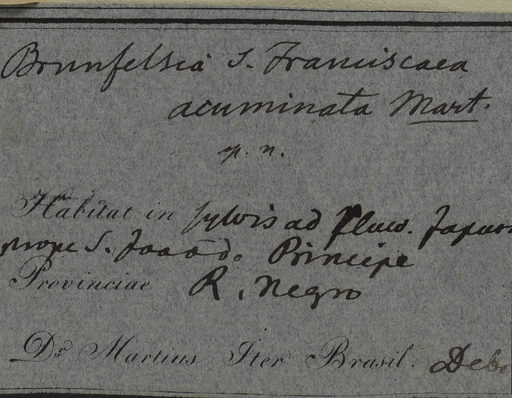 Brunfelsia s. Franciscaea
acuminata Mart.
sp. n.
Habitat in sylvis ad fluv. Japur
prope S. Joaõ do Principe
Provinciae R. Negro
Dr Martius Iter Brasil. Deb